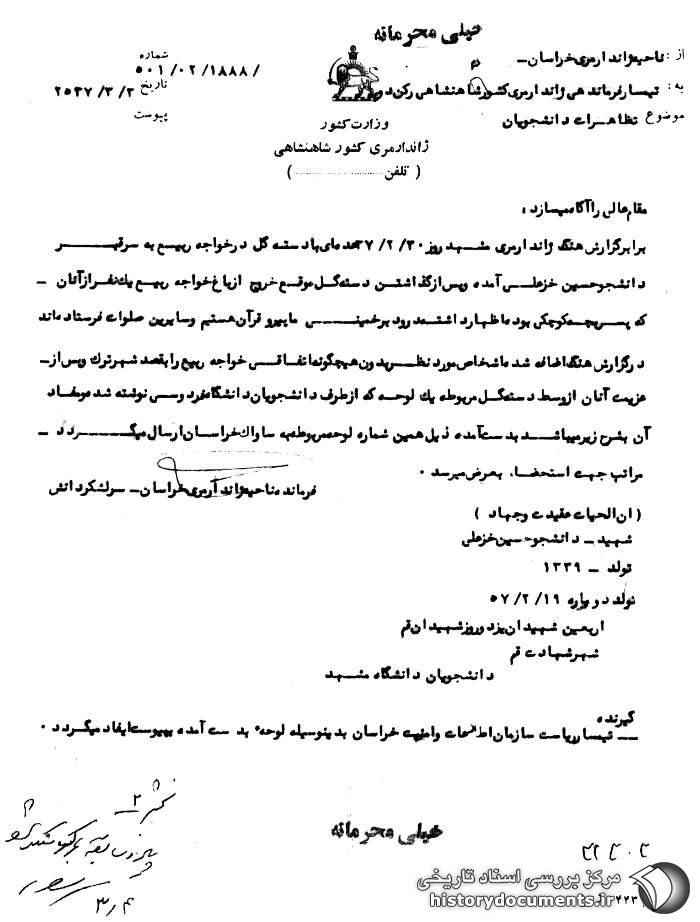 خیلی محرمانه
از : ناحیه ژاندارمری خراسان ـ
به : تیمسار فرماندهی ژاندارمری کشور شاهنشاهی رکن دو
موضوع تظاهرات دانشجویان
شماره
۵۰۱/۰۲/۱۸۸۸/
تاریخ ۲۵۳۷/۳/۲
پیوست
وزارت کشور
ژاندارمری کشور شاهنشاهی
( تلفن .................... )
مقام عالی را آگاه میسازد :
برابر گزارش هنگ ژاندارمری مشهد روز ۳۷/۲/۳۰ عده‌ای با دسته گل در خواجه ربیع به سر قبر
دانشجو حسین خزعلی آمده و پس از گذاشتن دسته گل موقع خروج از باغ خواجه ربیع یک نفر از آنان ـ
که پسر بچه کوچکی بوده اظهار داشته درود بر خمینی ما پیرو قرآن هستیم و سایرین صلوات فرستاده‌اند
در گزارش هنگ اضافه شده اشخاص مورد نظر بدون هیچگونه اتفاقی خواجه ربیع را بقصد شهر ترک و پس از ـ
عزیمت آنان از وسط دسته گل مربوطه یک لوحه که از طرف دانشجویان دانشگاه فردوسی نوشته شده و مفاد
آن بشرح زیر میباشد بدست آمده ذیل همین شماره لوحه مربوطه به ساواک خراسان ارسال میگردد ـ
مراتب جهت استحضار بعرض میرسد ۰
فرمانده ناحیه ژاندارمری خراسان ـ سرلشکر دانش
( ان الحیات عقیدت و جهاد )
شهید ـ دانشجو حسین خزعلی
تولد ـ ۱۳۳۹
تولد دوباره ۵۷/۲/۱۹
اربعین شهیدان یزد و روز شهیدان قم
شهر شهادت قم
دانشجویان دانشگاه مشهد
گیرنده
ـ تیمسار ریاست سازمان اطلاعات و امنیت خراسان بدینوسیله لوحه بدست آمده بپیوست ایفاد میگردد ۰
۳/۴
خیلی محرمانه
مرکز بررسی اسناد تاریخی
historydocuments.ir